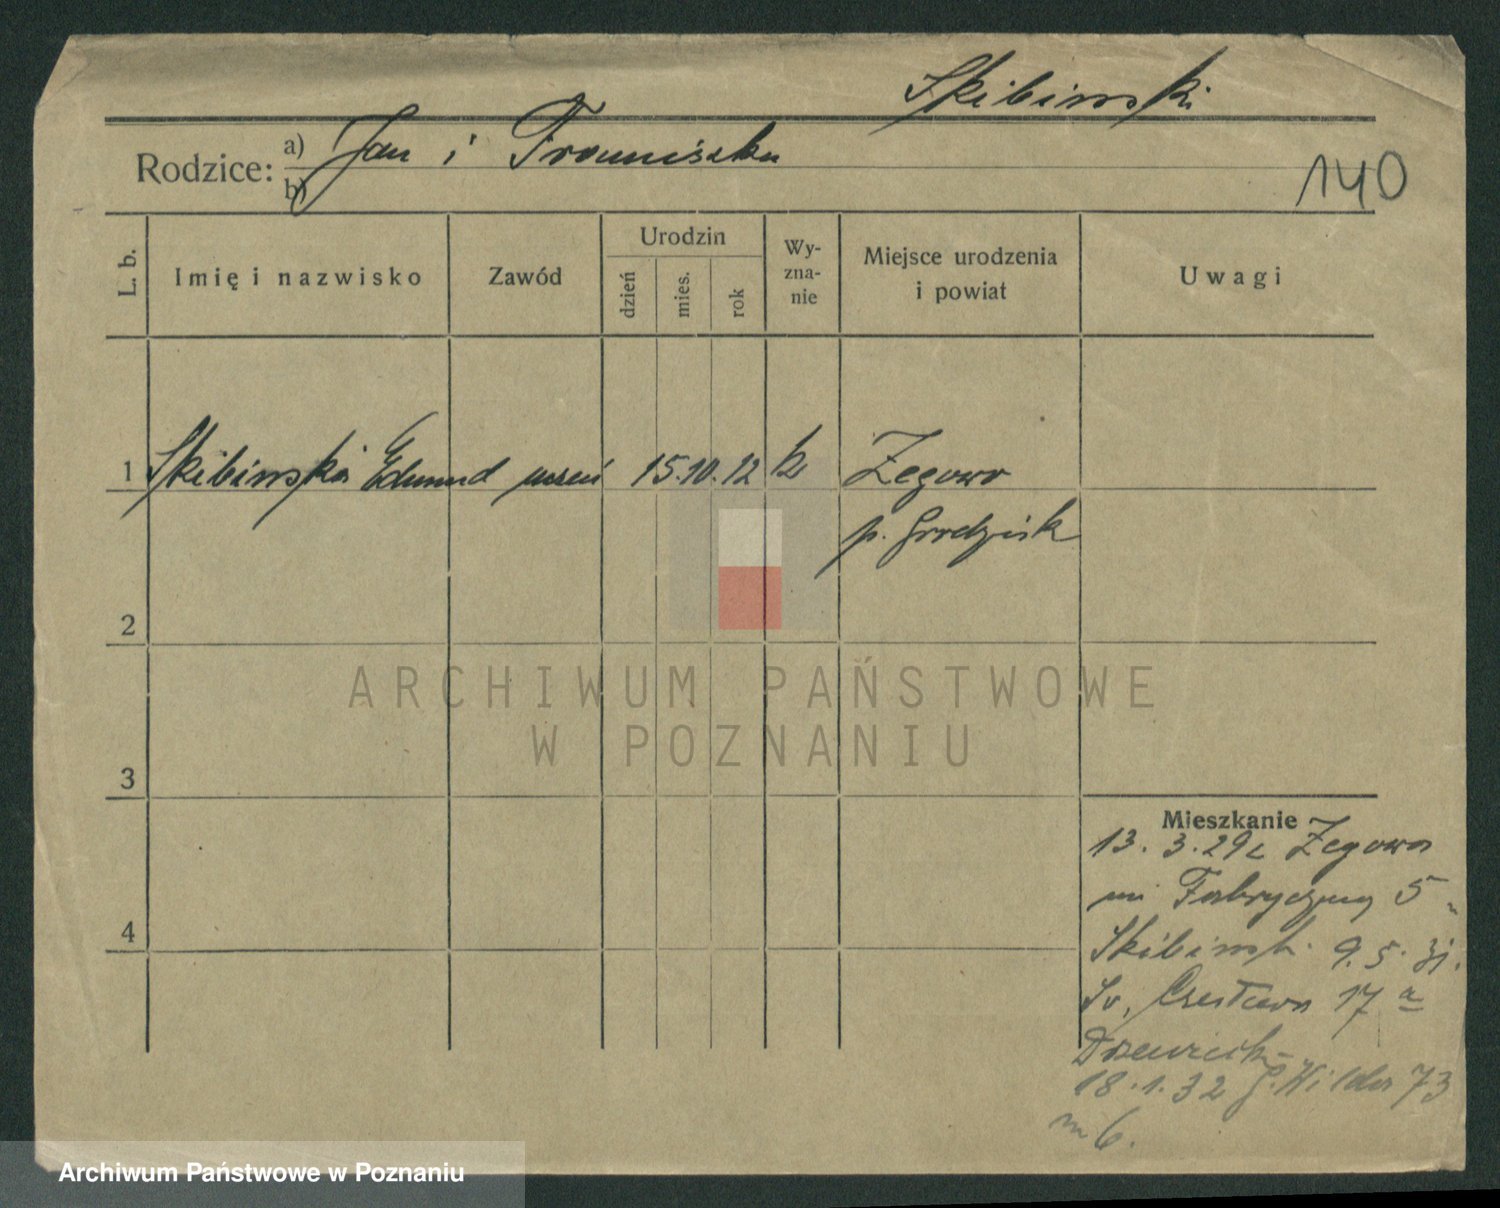 Skibinski
Rodzice: a) Jan i Franciszka
b)
140
L. b.
Imię i nazwisko
Zawód
Urodzin
dzień
mies.
rok
Wy-
zna-
nie
Miejsce urodzenia
i powiat
Uwagi
1 Skibinski Edmund uczeń 15.10.12 k Zegowo
p. Grodzisk
2
3
4
Mieszkanie
13.3.29 z Zegowo
Fabryczna 5
Skibinsk. 9.5.31.
Św. Czesława 17 a
18.1.32 G. Wilda 73
m 6.
ARCHIWUM PAŃSTWOWE
W POZNANIU
Archiwum Państwowe w Poznaniu